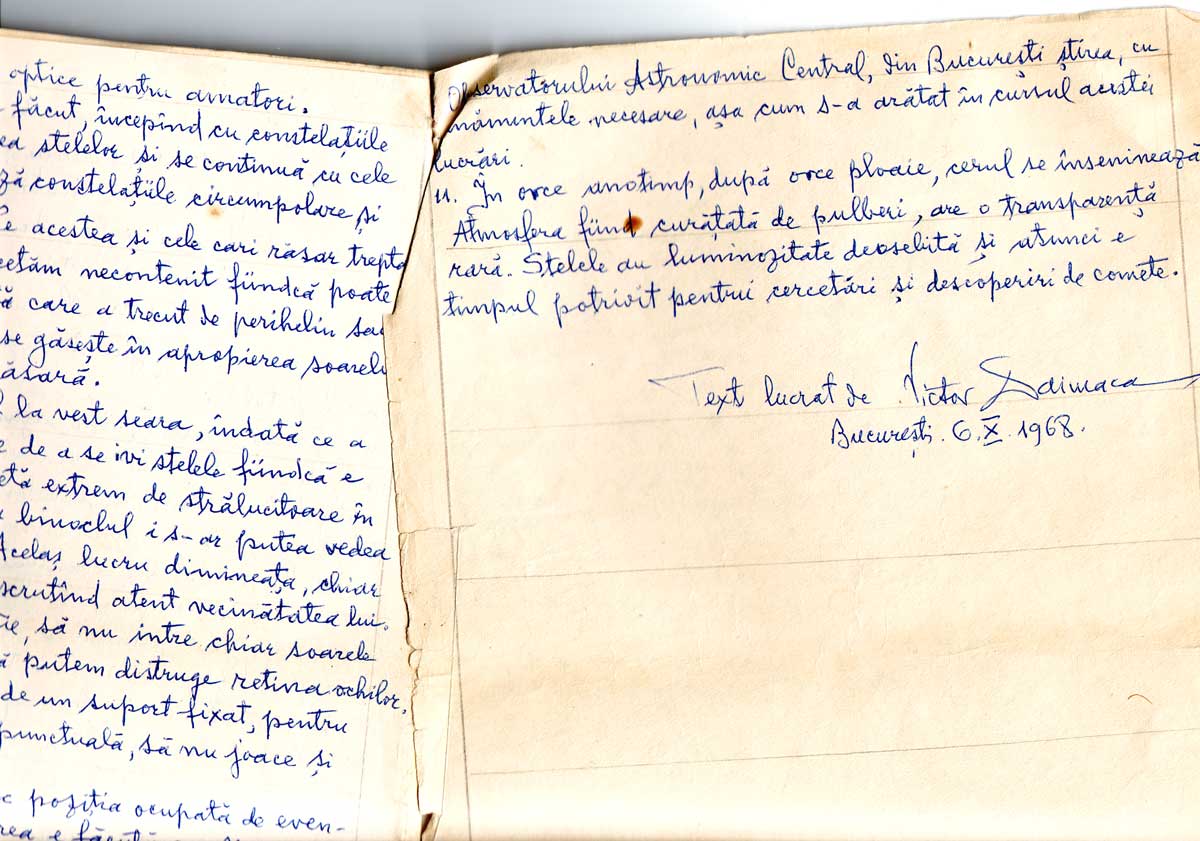 optice pentru amatori.
făcut, începînd cu constelațiile
ea stelelor și se continuă cu cele
ză constelațiile circumpolare, și
e acestea și cele cari răsar trepta
cetăm necontenit fiindcă poate
ă care a trecut de periheliu sau
se găsește în apropierea soarelu
ăsară.
la vest seara, îndată ce a
e de a se ivi stelele fiindcă e
etă extrem de strălucitoare în
binoclul i s-ar putea vedea
Același lucru dimineața, chiar
scrutînd atent vecinătatea lui.
ie, să nu intre chiar soarele
ă putem distruge retina ochilor.
de un suport fixat, pentru
punctuală, să nu joace și
c poziția ocupată de even-
rea e
Observatorului Astronomic Central, din București știrea, cu
nămintele necesare, așa cum s-a arătat în cursul acestei
lucrări.
11. În orce anotimp, după orce ploaie, cerul se înseninează
Atmosfera fiind curățată de pulberi, are o transparență
rară. Stelele au luminozitate deosebită și atunci e
timpul potrivit pentru cercetări și descoperiri de comete.
Text lucrat de Victor Daimaca
București. 6.X.1968.